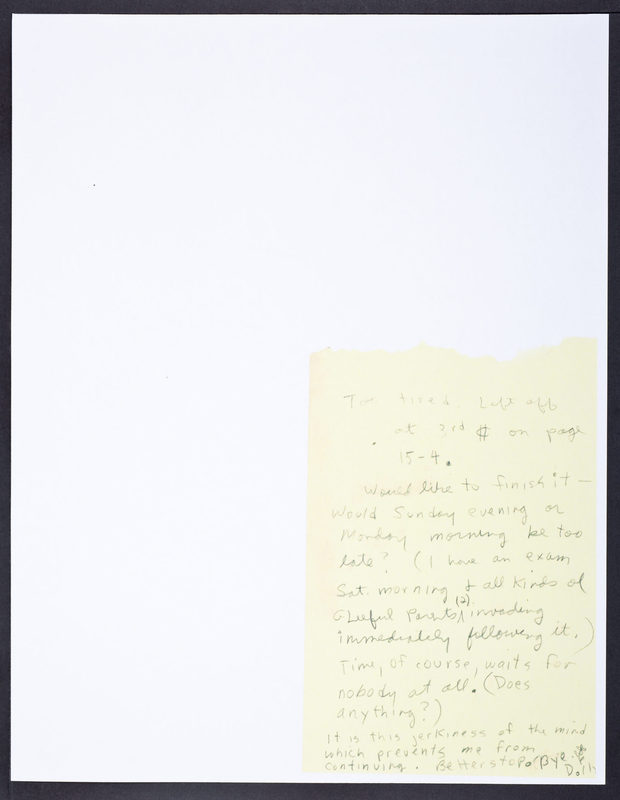 Too tired. Left off
at 3rd ¶ on page
15-4.
Would like to finish it —
Would Sunday evening or
Monday morning be too
late? (I have an exam
Sat. morning & all kinds of
Gleeful Parents (2) invading
immediately following it.)
Time, of course, waits for
nobody at all. (Does
anything?)
It is this jerkiness of the mind
which prevents me from
continuing. Better stop. Bye
Doll